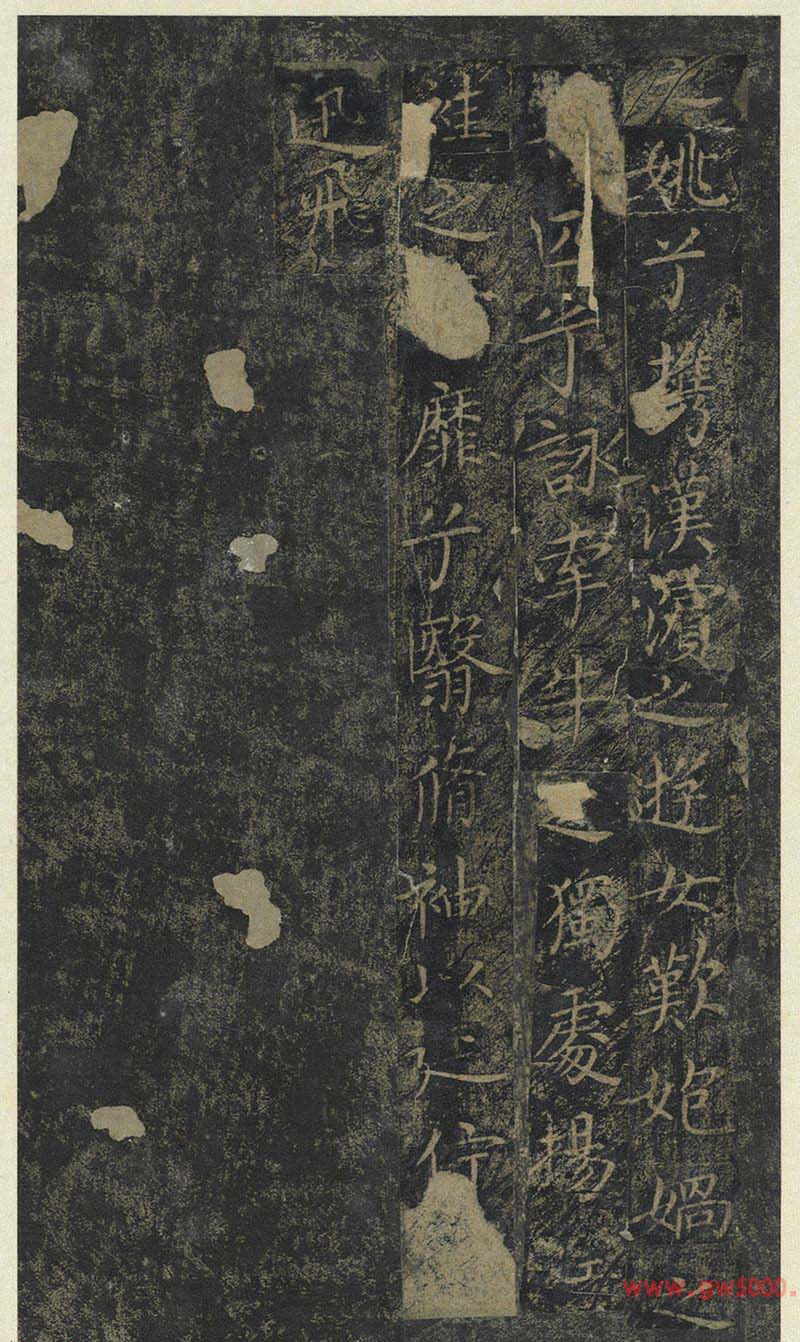 姚兮攜漢濱之遊女歎匏媧
匹兮詠牽牛之獨處揚
袿之靡兮翳脩袖以延佇
迅飛
www.gw5000.